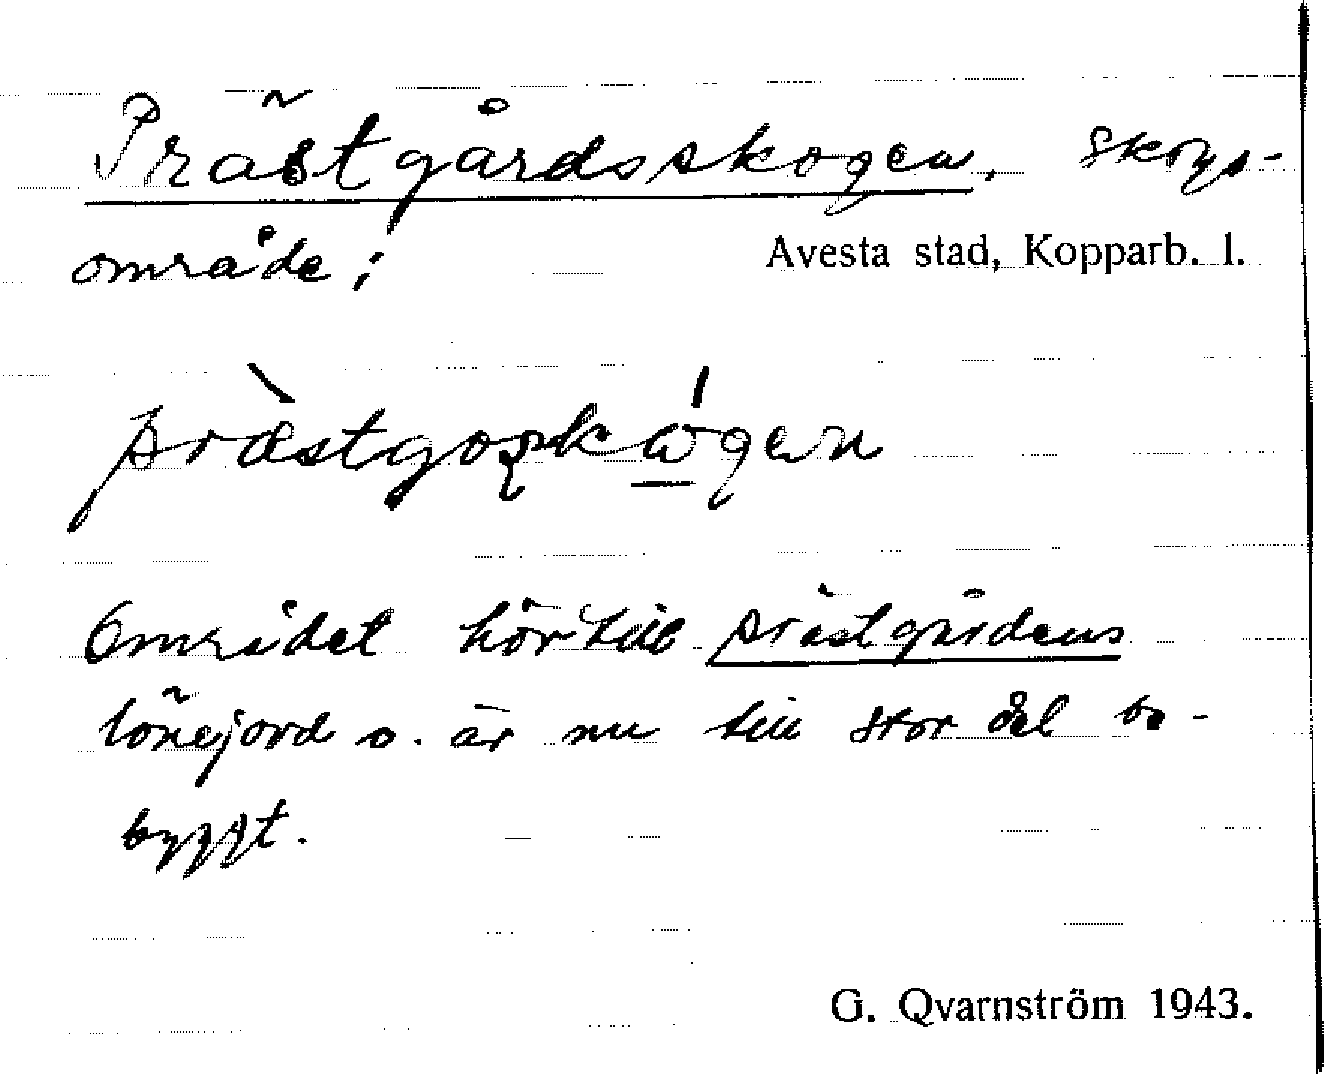 Prästgårdsskogen, skogs-
område; Avesta stad, Kopparb. l.
præ̀stgoʂkⱺ́gen
Området hör till prästgårdens
lönejord o. är nu till stor del be-
byggt.
G. Qvarnström 1943.